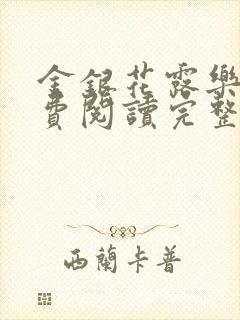 金銀花露樂
費閱讀完整
西蘭卡普